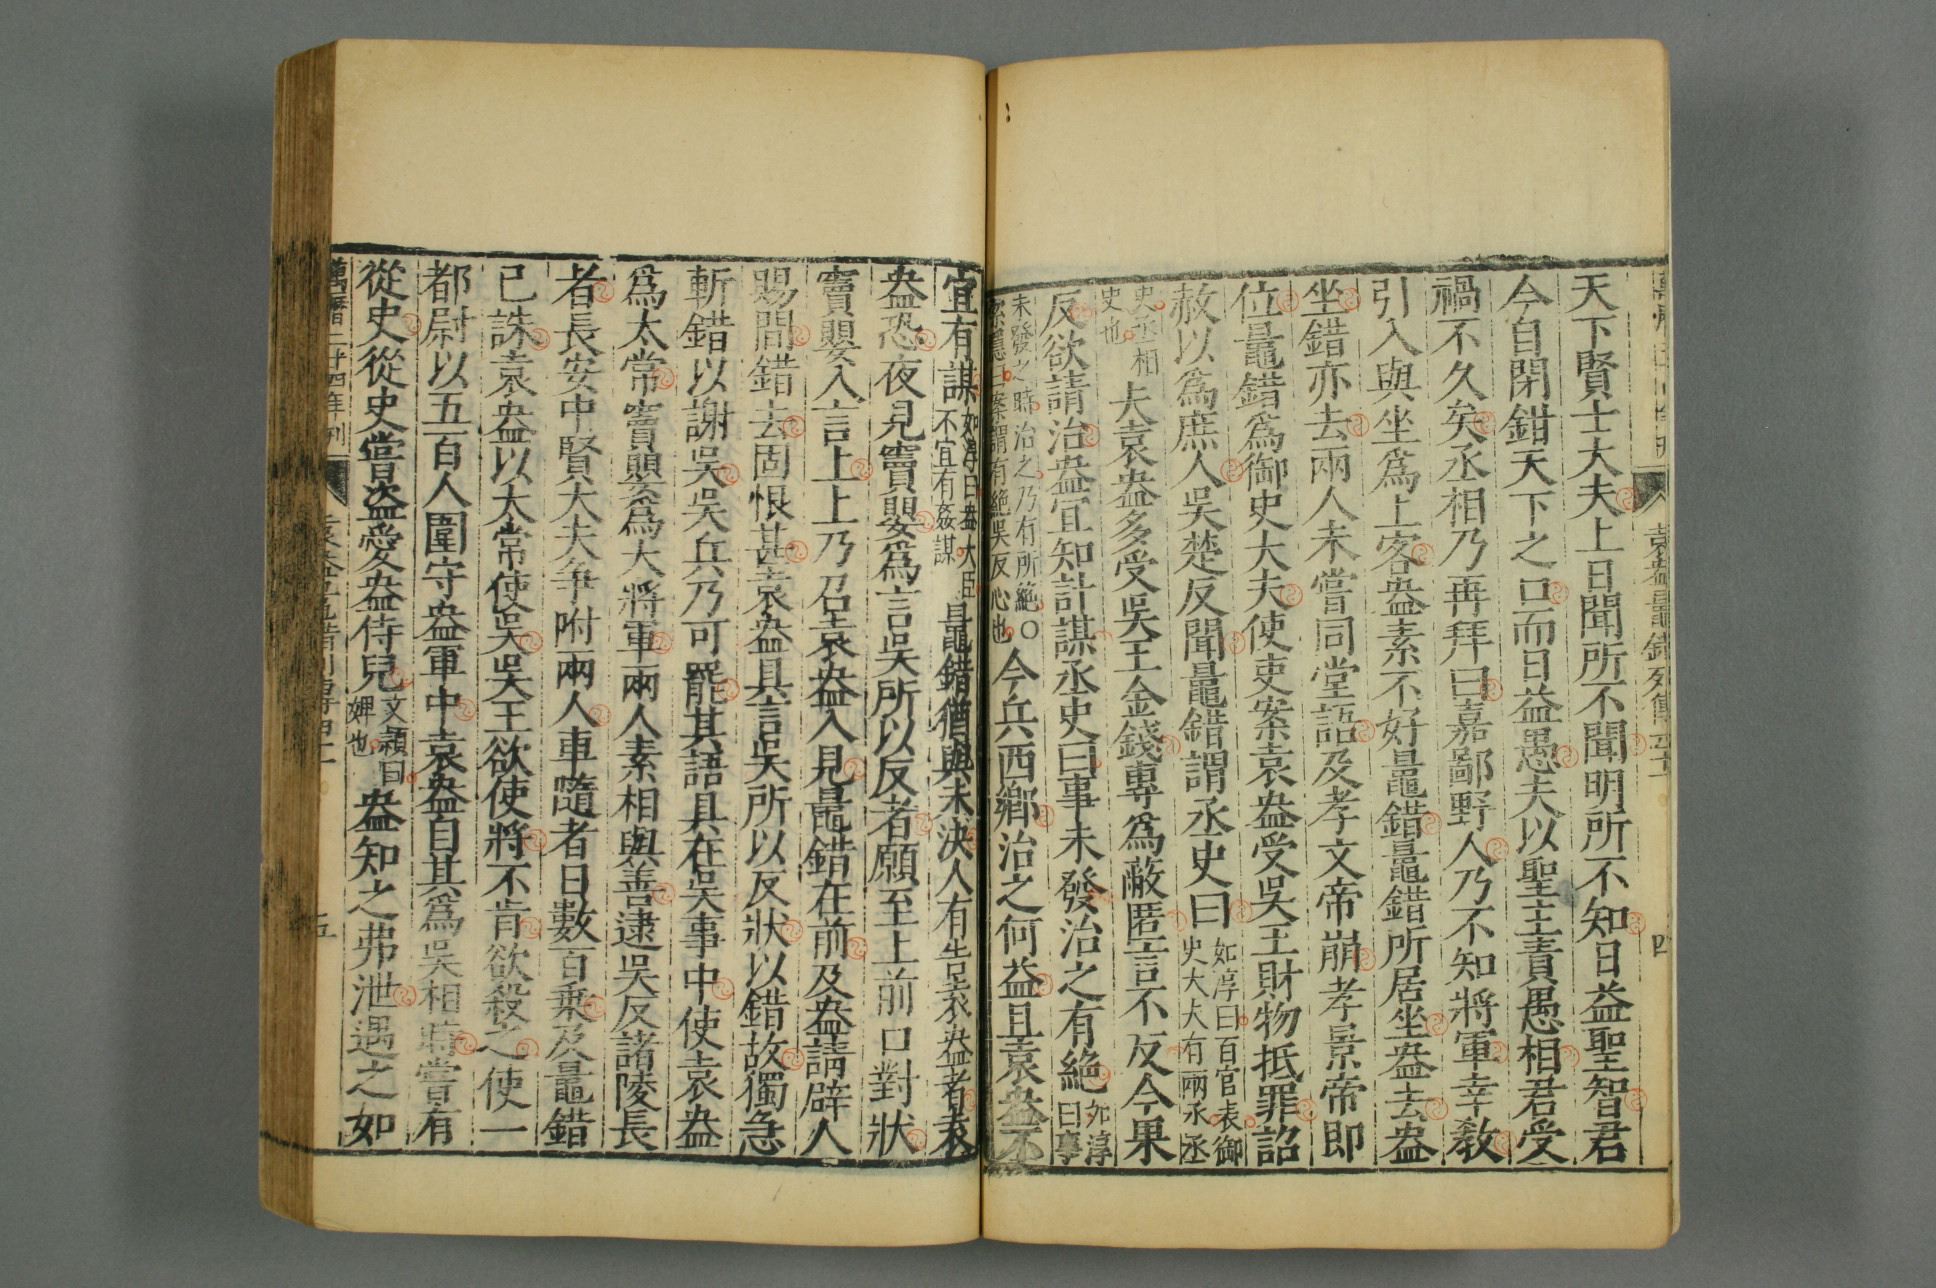 袁盎鼂錯列傳四十一
四
天下賢士大夫上日聞所不聞明所不知日益聖智君
今自閉鉗天下之口而日益愚夫以聖主責愚相君受
禍不久矣丞相乃再拜曰嘉鄙野人乃不知將軍幸敎
引入與坐爲上客盎素不好鼂錯鼂錯所居坐盎去盎
坐錯亦去兩人未嘗同堂語及孝文帝崩孝景帝即
位鼂錯爲御史大夫使吏案袁盎受吳王財物抵罪詔
赦以爲庶人吳楚反聞鼂錯謂丞史曰如淳曰百官表御史大夫有兩丞丞
史丞相史也夫袁盎多受吳王金錢專爲蔽匿言不反今果
反欲請治盎宜知計謀丞史曰事未發治之有絶如淳曰事
未發之時治之乃有所絶〇索隱曰案謂有絶吳反心也今兵西鄉治之何益且袁盎不
宜有謀如淳曰盎大臣不宜有姦謀鼂錯猶與未決人有告袁盎者袁
盎恐夜見竇嬰爲言吳所以反者願至上前口對狀
竇嬰入言上上乃召袁盎入見鼂錯在前及盎請辟人
賜間錯去固恨甚袁盎具言吳所以反狀以錯故獨急
斬錯以謝吳吳兵乃可罷其語具在吳事中使袁盎
爲太常竇嬰爲大將軍兩人素相與善逮吳反諸陵長
者長安中賢大夫爭附兩人車隨者日數百乗及鼂錯
已誅袁盎以太常使吳吳王欲使將不肯欲殺之使一
都尉以五百人圍守盎軍中袁盎自其爲吳相時嘗有
從史從史嘗盜愛盎侍兒文穎曰婢也盎知之弗泄遇之如
萬曆二十四年刊
五